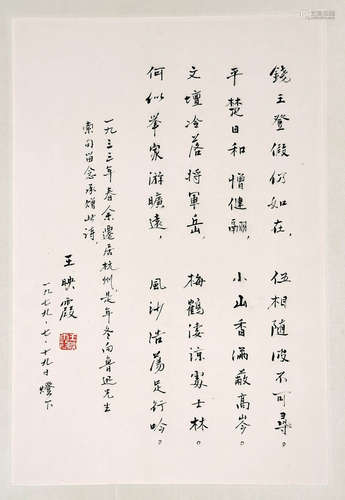 錢王登假仍如在，伍相隨波不可尋。
平楚日和憎健翮，小山香滿蔽高岑。
文壇冷落將軍岳，梅鶴淒涼處士林。
何似舉家游曠遠，風沙浩蕩足行吟。
一九三三年春余遷居杭州，是年冬向魯迅先生
索句留念承贈此詩。
王映霞
一九七九·七·十九日燈下